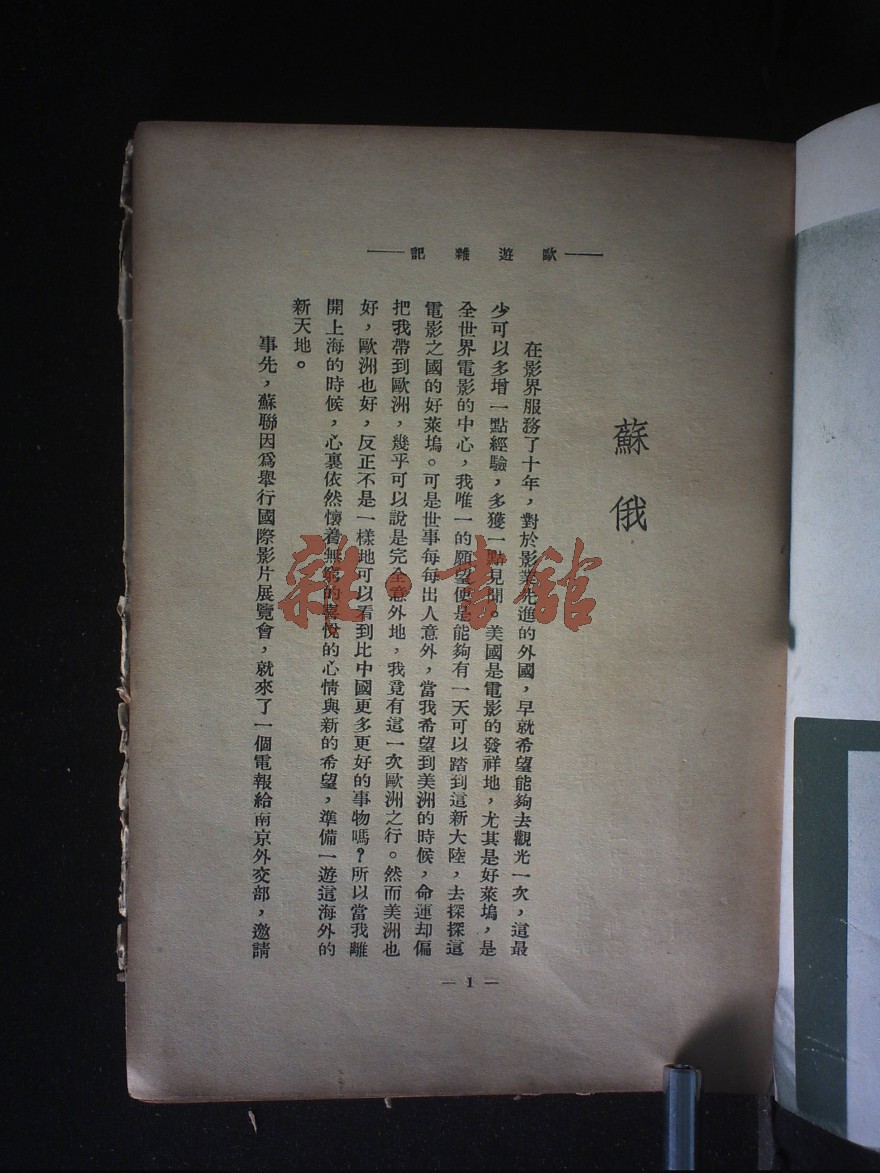 歐遊雜記
蘇俄
在影界服務了十年，對於影業先進的外國，早就希望能夠去觀光一次，這最
少可以多增一點經驗，多獲一點見聞。美國是電影的發祥地，尤其是好萊塢，是
全世界電影的中心，我唯一的願望便是能夠有一天可以踏到這新大陸，去探探這
電影之國的好萊塢。可是世事每每出人意外，當我希望到美洲的時候，命運却偏
把我帶到歐洲，幾乎可以說是完全意外地，我竟有這一次歐洲之行。然而美洲也
好，歐洲也好，反正不是一樣地可以看到比中國更多更好的事物嗎？所以當我離
開上海的時候，心裏依然懷着無窮的喜悅的心情與新的希望，準備一遊這海外的
新天地。
事先，蘇聯因爲舉行國際影片展覽會，就來了一個電報給南京外交部，邀請
— 1 —
雜·書館